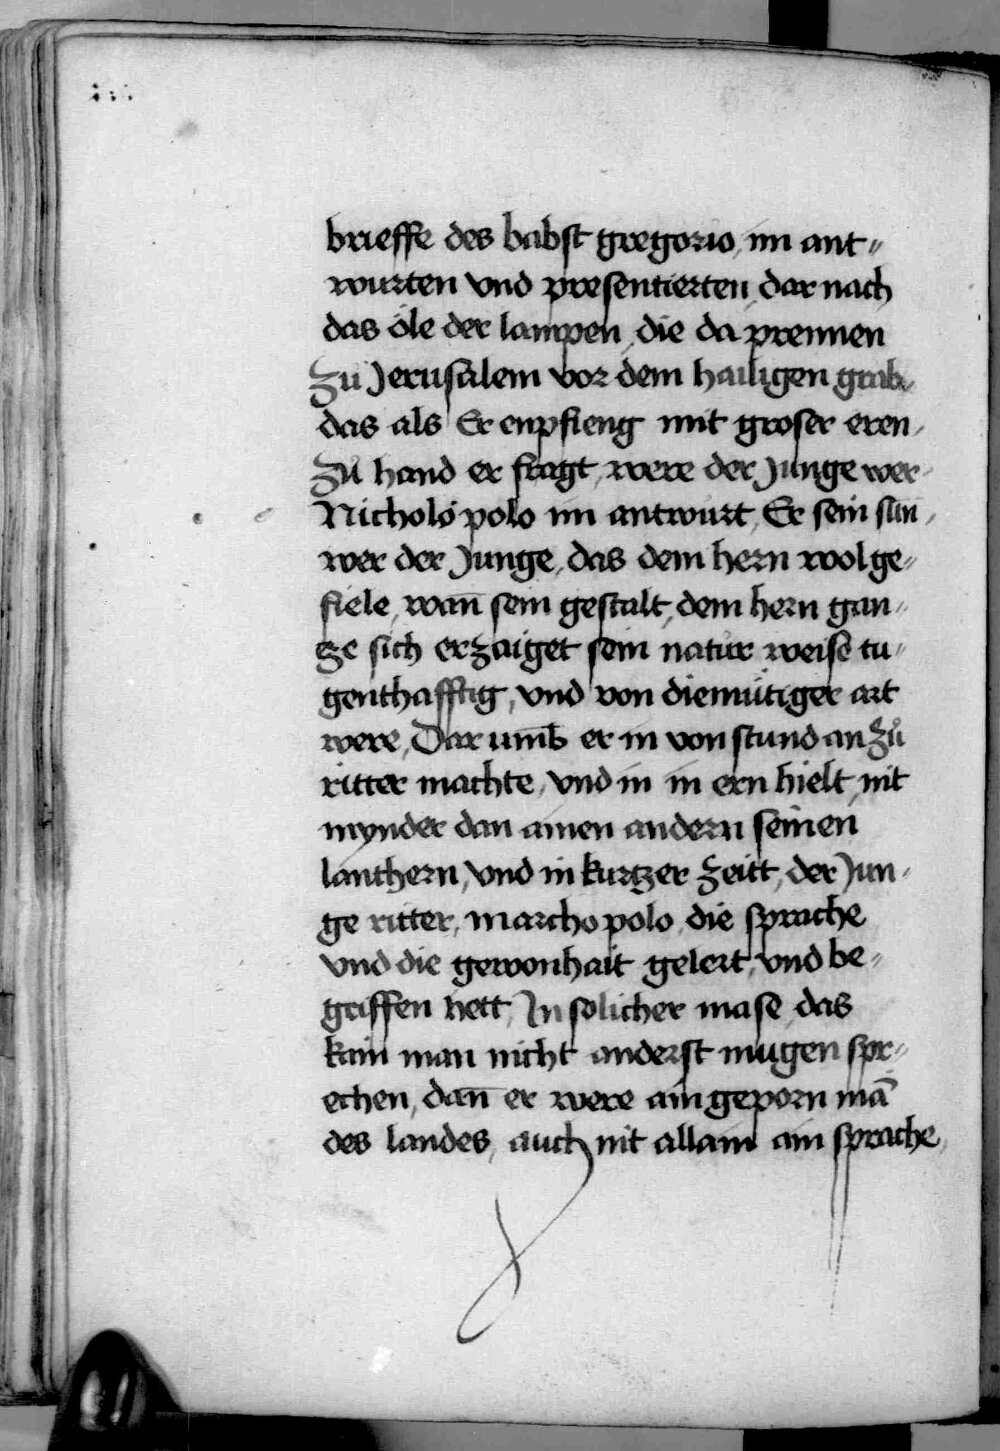 brieffe des babst gregorio, im ant⸗
wurten vnd presentierten, dar nach
das öle der lampen, die da prennen
zu Jerusalem vor dem hailigen grab,
das als Er enpfieng mit groser eren,
zů hand er fragt, were der Junge wer⸗
Nicholo polo im antwurt, Er sein sun,
wer der Junge, das dem hern wol ge⸗
fiele, wan̄ sein gestalt, dem hern gan⸗
tze sich erzaiget sein natůr weise tu⸗
genthafftig, vnd von diemütiger art
were, Dar umb er in von stund an zů
ritter machte, vnd in in ern hielt, nit
mynder dan ainen andern seinen
lanthern, vnd in kurtzer zeitt, der Jun⸗
ge ritter, marcho polo, die sprache
vnd die gewonhait gelert, vnd be⸗
griffen hett, Jn solicher mase, das
kain man nicht anderst mugen spr⸗
echen, dan̄ er were ain geporn mā
des landes, auch nit allain ain sprache,